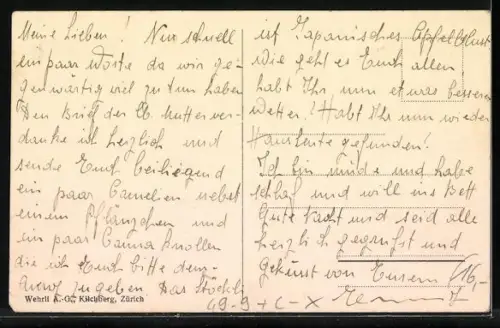 Meine Lieben! Nur schnell
ein paar Worte da wir ge-
genwärtig viel zu tun haben
Den Brief der lb. Mutter ver-
danke ich herzlich und
sende Euch beiliegend
ein paar Camelien nebst
einem Pflänzchen und
ein paar Canna Knollen
die ich Euch bitte dem
zu geben. Das Stöckli
Wehrli A.-G., Kilchberg, Zürich
ist Japanisches
Wie geht es Euch allen
habt Ihr nun etwas besseres
Wetter? Habt Ihr nun wieder
Hausleute gefunden?
Ich bin müde und habe
Schlaf und will ins Bett
Gute Nacht und seid alle
herzlich gegrüsst und
geküsst von Eurem
16,-
49-9 + C - X